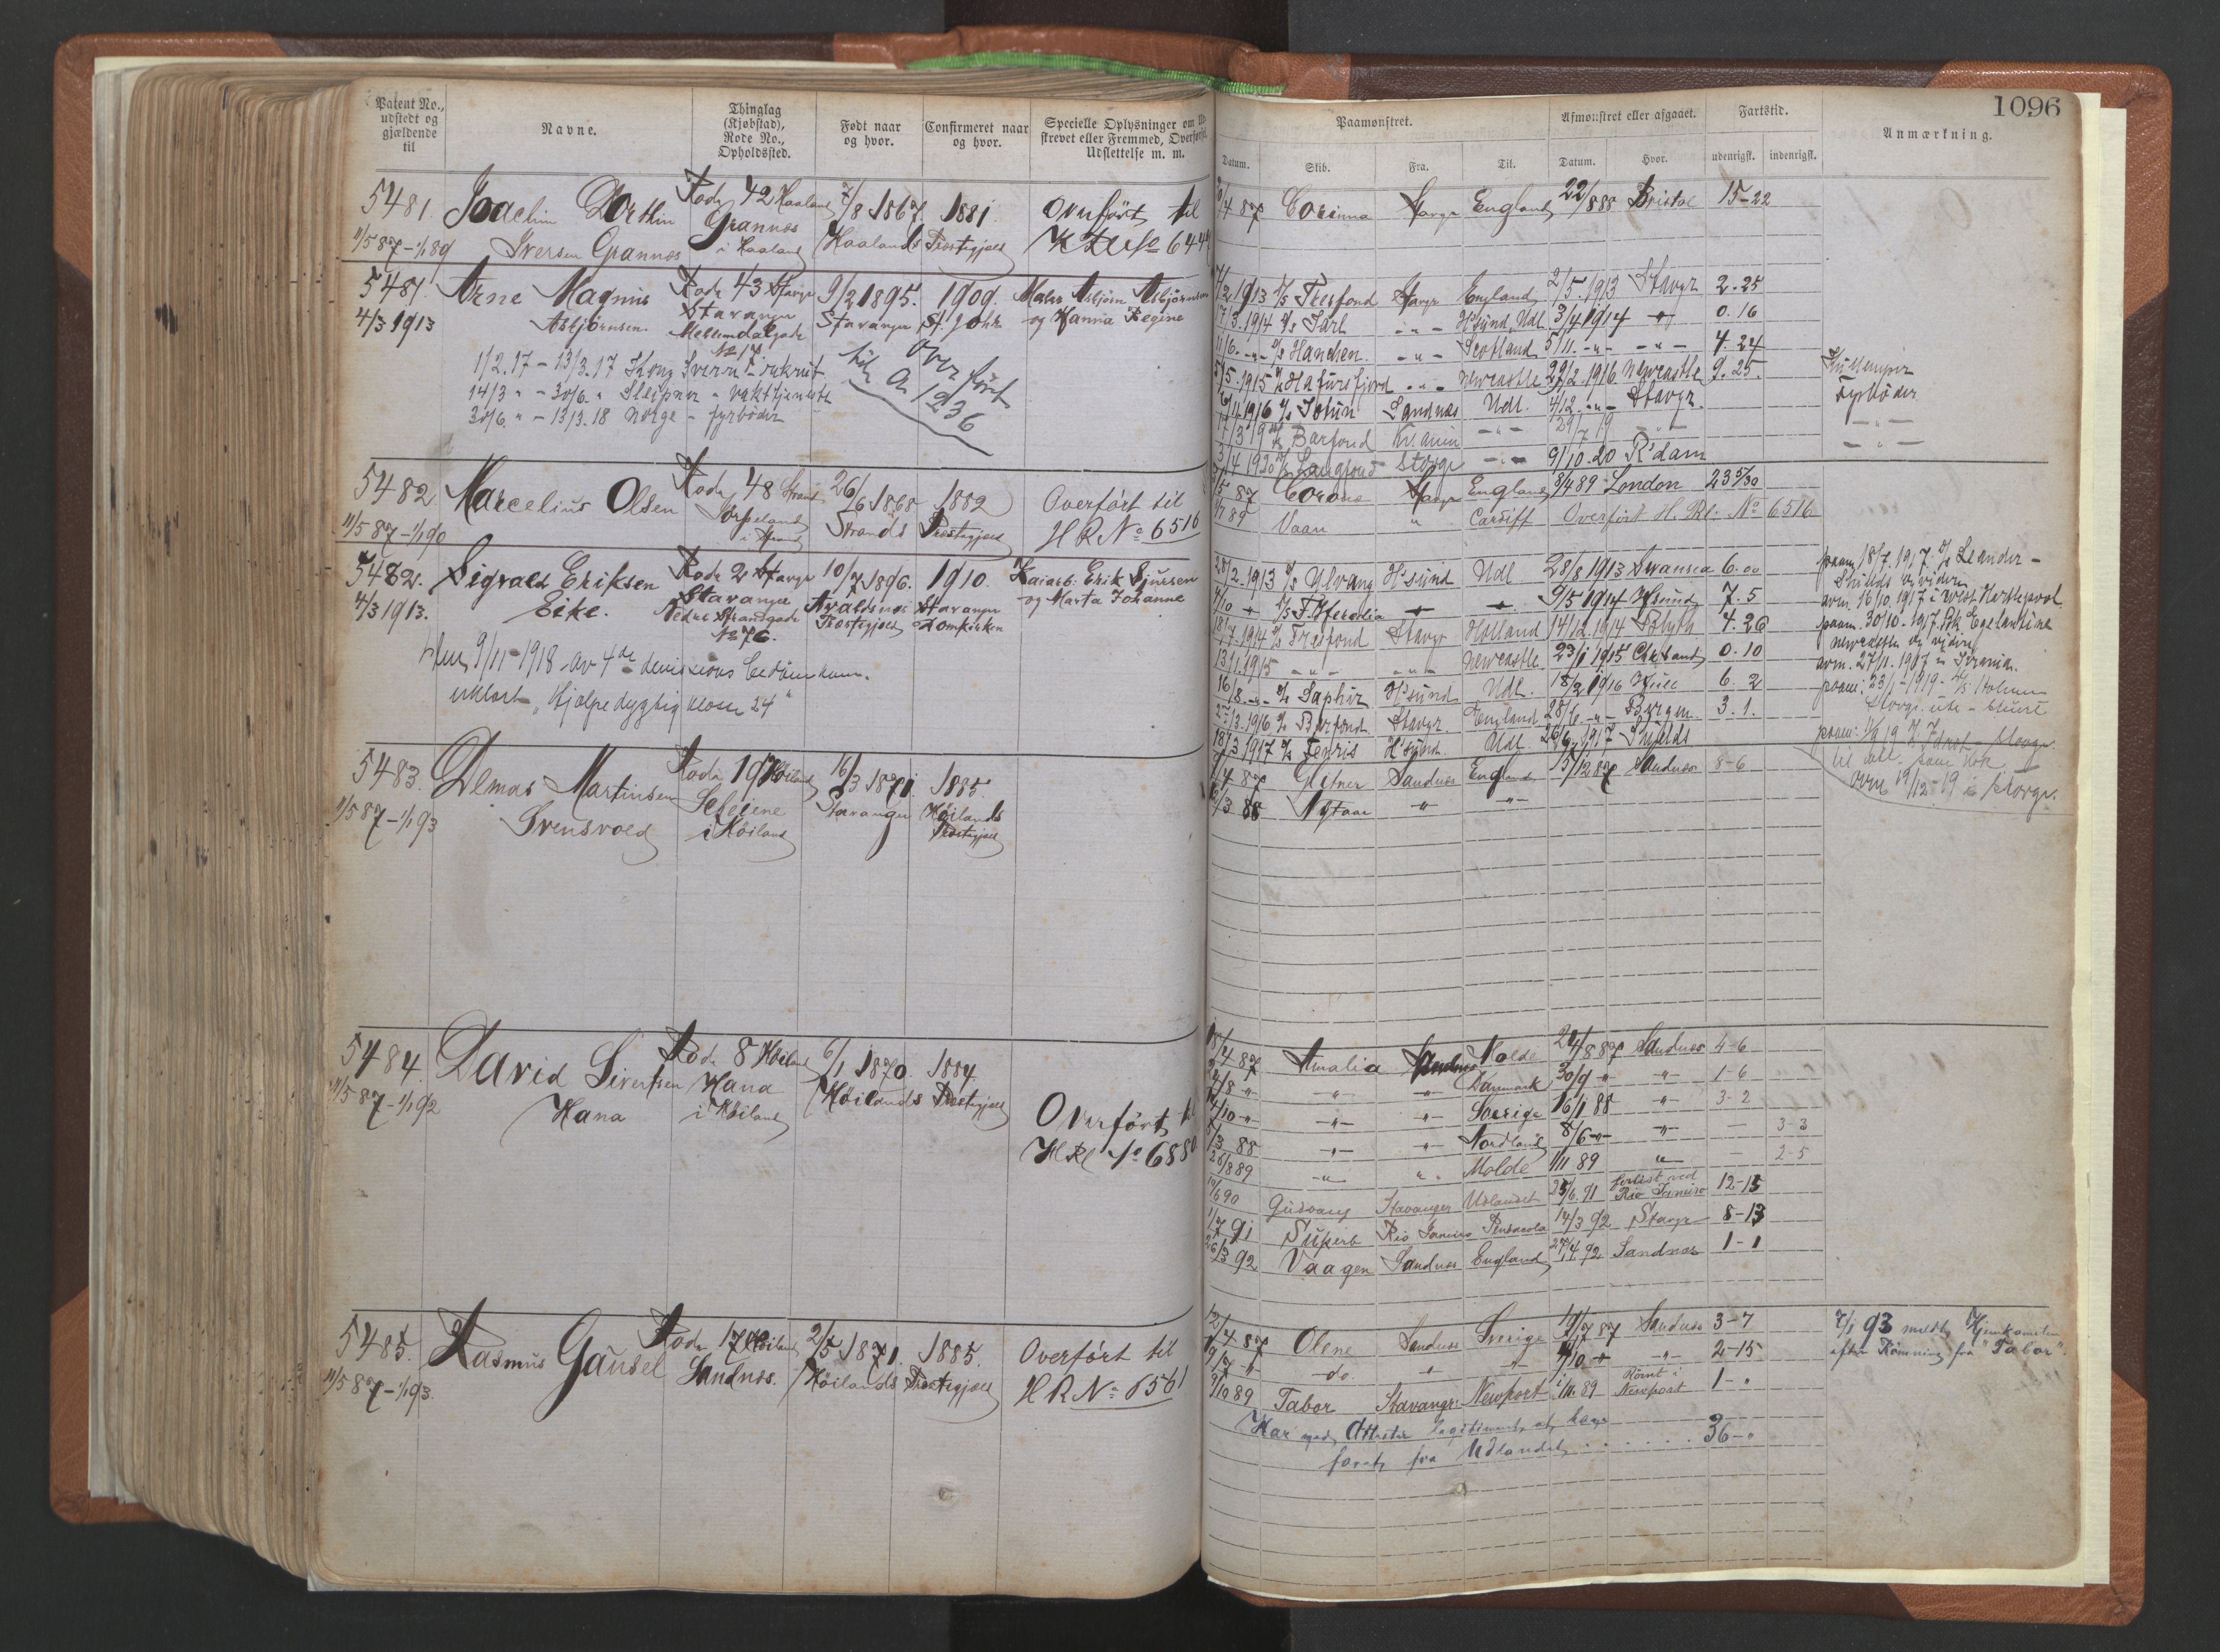 Patent No., udstedt og gjældende til
Navne.
Thinglag (Kjøbstad), Rode No., Opholdssted.
Født naar og hvor.
Confirmeret naar og hvor.
Specielle Oplysninger om
strevet eller Fremmed, Overført
Udslettelse m. m.
5481. Joachim Dorthin Rode 42 Haaland 7/8 1867. 1881. Overført til
11/5 87 - 1/1 89 Iversen Grannes Grannes i Haaland Haalands Præstegjæld
5481. Arne Magnus Rode 43 Stavgr 9/2 1895. 1909. Maler Asbjørn Asbjørnsen
4/3 1913 Asbjørnsen. Stavanger Stavanger St. Joh. og Hanna Regine
Mellemdalgade
No 17.
1/2.17 - 13/3.17 Kong Sverre - rekrut
14/3 " - 30/6. " Sleipner - vakttjeneste
30/6. " - 13/3.18 Norge - fyrbøder
Overført
til A 1236
5482 Marcelius Olsen Rode 48 Strand 26/6 1868 1882 Overført til
11/5 87 - 1/1 90 Jørpeland i Strand Strands Præstegjæld H R No 6516
5482. Sigvald Eriksen Rode 2 Stavgr 10/7 1896. 1910. Kaiarb. Erik Sjursen
4/3 1913. Eike. Stavanger Avaldsnes Stavanger og Marta Johanne
Nedre Strandgade Præstegjæld Domkirken
No 76.
9/11 - 1918 av 4de divisions
"Hjælpedygtig klasse 24"
5483. Elmas Martinsen Rode 19 Høiland 16/3 1871. 1885.
11/5 87 - 1/1 93 Svensvold i Høiland Stavanger Høilands Præstegjæld
5484. David Sivertsen Rode 8 Høiland 6/1 1870. 1884.
11/5 87 - 1/1 92 Hana Hana i Høiland Høilands Præstegjæld
Overført til
HRl No 688
5485. Rasmus Gausel Rode 17 Høiland 2/5 1871. 1885. Overført til
11/5 87 - 1/1 93. Sandnæs. Høilands Præstegjæld H R No 6561
1096
Paamønstret.
Afmønstret eller afgaaet.
Fartstid.
Anmærkning.
Datum.
Skib.
Fra.
Til.
Datum.
Hvor.
udenrigsk.
indenrigsk.
4 87 Corinna Stavgr England 22/8 88 Bristol 15-22
2 1913 Tresfond Stavgr England 2/5.1913 Stavgr 2.25
17/3.1914 Jarl - " - H'sund, Udl. 3/4 1914 " 0.16
- " - Hanchen. - " - Scotland 5/11. - " - - " - 4.24
5.1915 Hafursfjord - " - Newcastle 29/2.1916 Newcastle 9.25.
1916 Jotun Sandnæs Udl. 4/12. - " - Stavgr.
Fyrbøder
17/3 19 Barfond - " -
1920 Langfond Stavgr - " - 9/10.20 R'dam
5 87 Corona Stavgr England 8/4 89 London 23 5/30
89 Vaan " Cardiff Overført H. Rl. No 6516
28/2.1913 Ulvang H'sund Udl 28/8 1913 Swansea 6.00
4/10 9/5 1914 H'sund 7.5
7.1914 Tresfond Stavgr Holland 14/12.1914 Blyth 4.26
13/1.1915 - " - - " - Newcastle 23/1 1915 Chrsand 0.10
16/8. - " - Saphir H'sund Udl. 18/2 1916 Hull 6.2
2.1916 Barfond Stavgr. England 28/6 - " - Bergen. 3.1.
18/3 1917 Fenris H'sund. Udl. 26/6.1917 Shields
paam 18/7.1917. Leander -
Shields og videre
avm. 16/10.1917 i West Hartlepool
paam. 30/10 - 1917. Egelantine
Newcastle og videre
paam: 23/1 - 1919 -
19/12 - 19 i Stavgr.
4 87 Gefner Sandnes England 15/12 87 Sandnes 8-6
3 88 " - " -
4 87 Amalia Sandnes Molde 24/8 87 Sandnes 4-6
8 " - " - - " - Danmark 30/9 " " 1-6
10 " - " - - " - Sverige 16/1 88 " 3-2
3 88 - " - - " - Nordland 8/6 - " - - " - - 3-3
26/8 89 - " - " Molde 1/11 89 " - 2-5
6 90 Gudvang Stavanger Udlandet 25/6.91 forlist ved Rio Janeiro 12-15
1/7 91 Superb Rio Janeiro Pensacola 14/3 92 Stavgr 8-13
26/3 92 Vaagen Sandnes England 27/4.92 Sandnes 1-1
4 87 Olene Sandnes Sverige 14/7 87 Sandnes 3-7
7 " - do. " " 4/10 " - " - 2-15
10 89 Tabor Stavangr. Newport 1/11.89 Rømt i Newport 1-"
Har med Attester legitimeret at have
foret fra Udlandet . . . . . . 36-"
7/1 93 meldt Hjemkomsten
efter Rømning fra "Tabor".